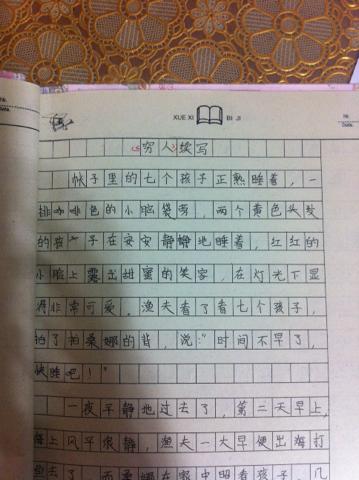 XUE XI BI JI
No.
Date.
《穷人》续写
帐子里的七个孩子正熟睡着，一
排咖啡色的小脑袋旁，两个黄色头发
的孩子在安安静静地睡着，红红的
小脸上露出甜蜜的笑容，在灯光下显
得非常可爱。渔夫看了看七个孩子，
拍了拍桑娜的背，说：“时间不早了，
快睡吧！”
一夜平静地过去了，第二天早上，
海上风平浪静，渔夫一大早便出海打
鱼去了，而桑娜在家中照看孩子，几